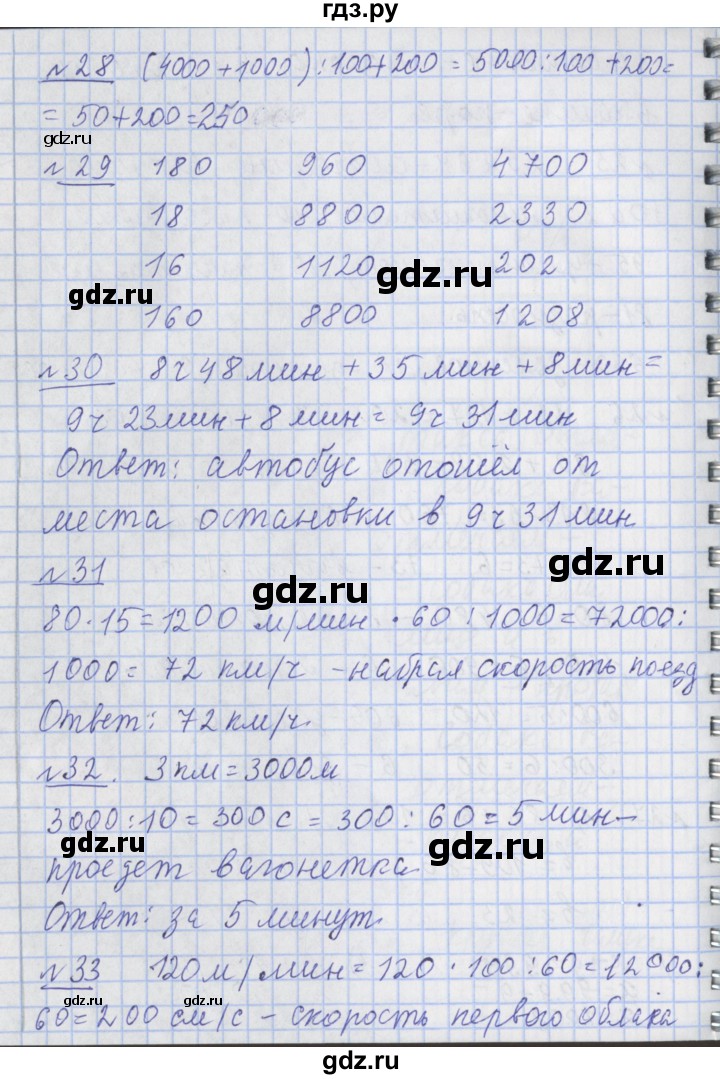 гдз.ру
№28 (4000+1000):100+200 = 5000:100 +200=
= 50+200=250
gdz.ru
gdz.ru
№29 180 960 4700
18 8800 2330
16 1120 202
gdz.ru
gdz.ru
160 8800 1208
№30 8ч48мин +35мин +8мин=
9ч 23мин+8мин= 9ч 31мин
Ответ: автобус отошёл от
места остановки в 9ч31мин
gdz.ru
gdz.ru
№31
80·15=1200 м/мин ·60 :1000=72000:
1000= 72 км/ч -набрал скорость поезд
Ответ: 72км/ч.
№32. 3км=3000м
3000:10=300с = 300:60=5мин-
проедет вагонетка
gdz.ru
gdz.ru
Ответ: за 5 минут.
№33 120м/мин=120·100:60=12000:
gdz.ru
gdz.ru
60=200см/с - скорость первого облака
gdz.ru